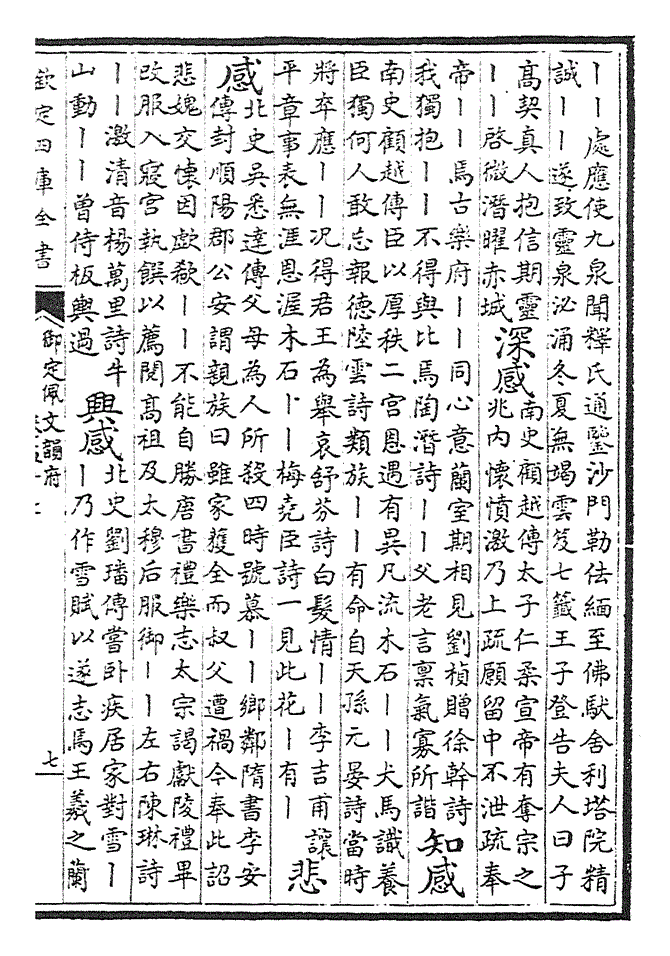 丨丨處應使九泉聞釋氏通鑒沙門勒佉緬至佛馱舍利塔院精
誠丨丨遂致靈泉泌涌冬夏無竭雲笈七籤王子登告夫人曰子
高契真人抱信期靈
丨丨啓微潛曜赤城
深感
南史顧越傳太子仁柔宣帝有奪宗之
兆内懷憤激乃上疏願留中不泄疏奉
帝丨丨焉古樂府丨丨同心意蘭室期相見劉楨贈徐幹詩
我獨抱丨丨不得與比焉陶潛詩丨丨父老言禀氣寡所諧
知感
南史顧越傳臣以厚秩二宮恩遇有異凡流木石丨丨犬馬識養
臣獨何人敢忘報德陸雲詩類族丨丨有命自天孫元晏詩當時
將卒應丨丨况得君王為舉哀舒芬詩白髮情丨丨李吉甫讓
平章事表無涯恩渥木石丨丨梅堯臣詩一見此花丨有丨
悲
感
北史吳悉達傳父母為人所殺四時號慕丨丨鄉鄰隋書李安
傳封順陽郡公安謂親族曰雖家獲全而叔父遭禍今奉此詔
悲媿交懷因歔欷丨丨不能自勝唐書禮樂志太宗謁獻陵禮畢
改服入寢宮執饌以薦閱高祖及太穆后服御丨丨左右陳琳詩
丨丨激清音楊萬里詩牛
山動丨丨曾侍板輿過
興感
北史劉璠傳嘗卧疾居家對雪丨
丨乃作雪賦以遂志焉王羲之蘭
欽定四庫全書
御定佩文韻府
七